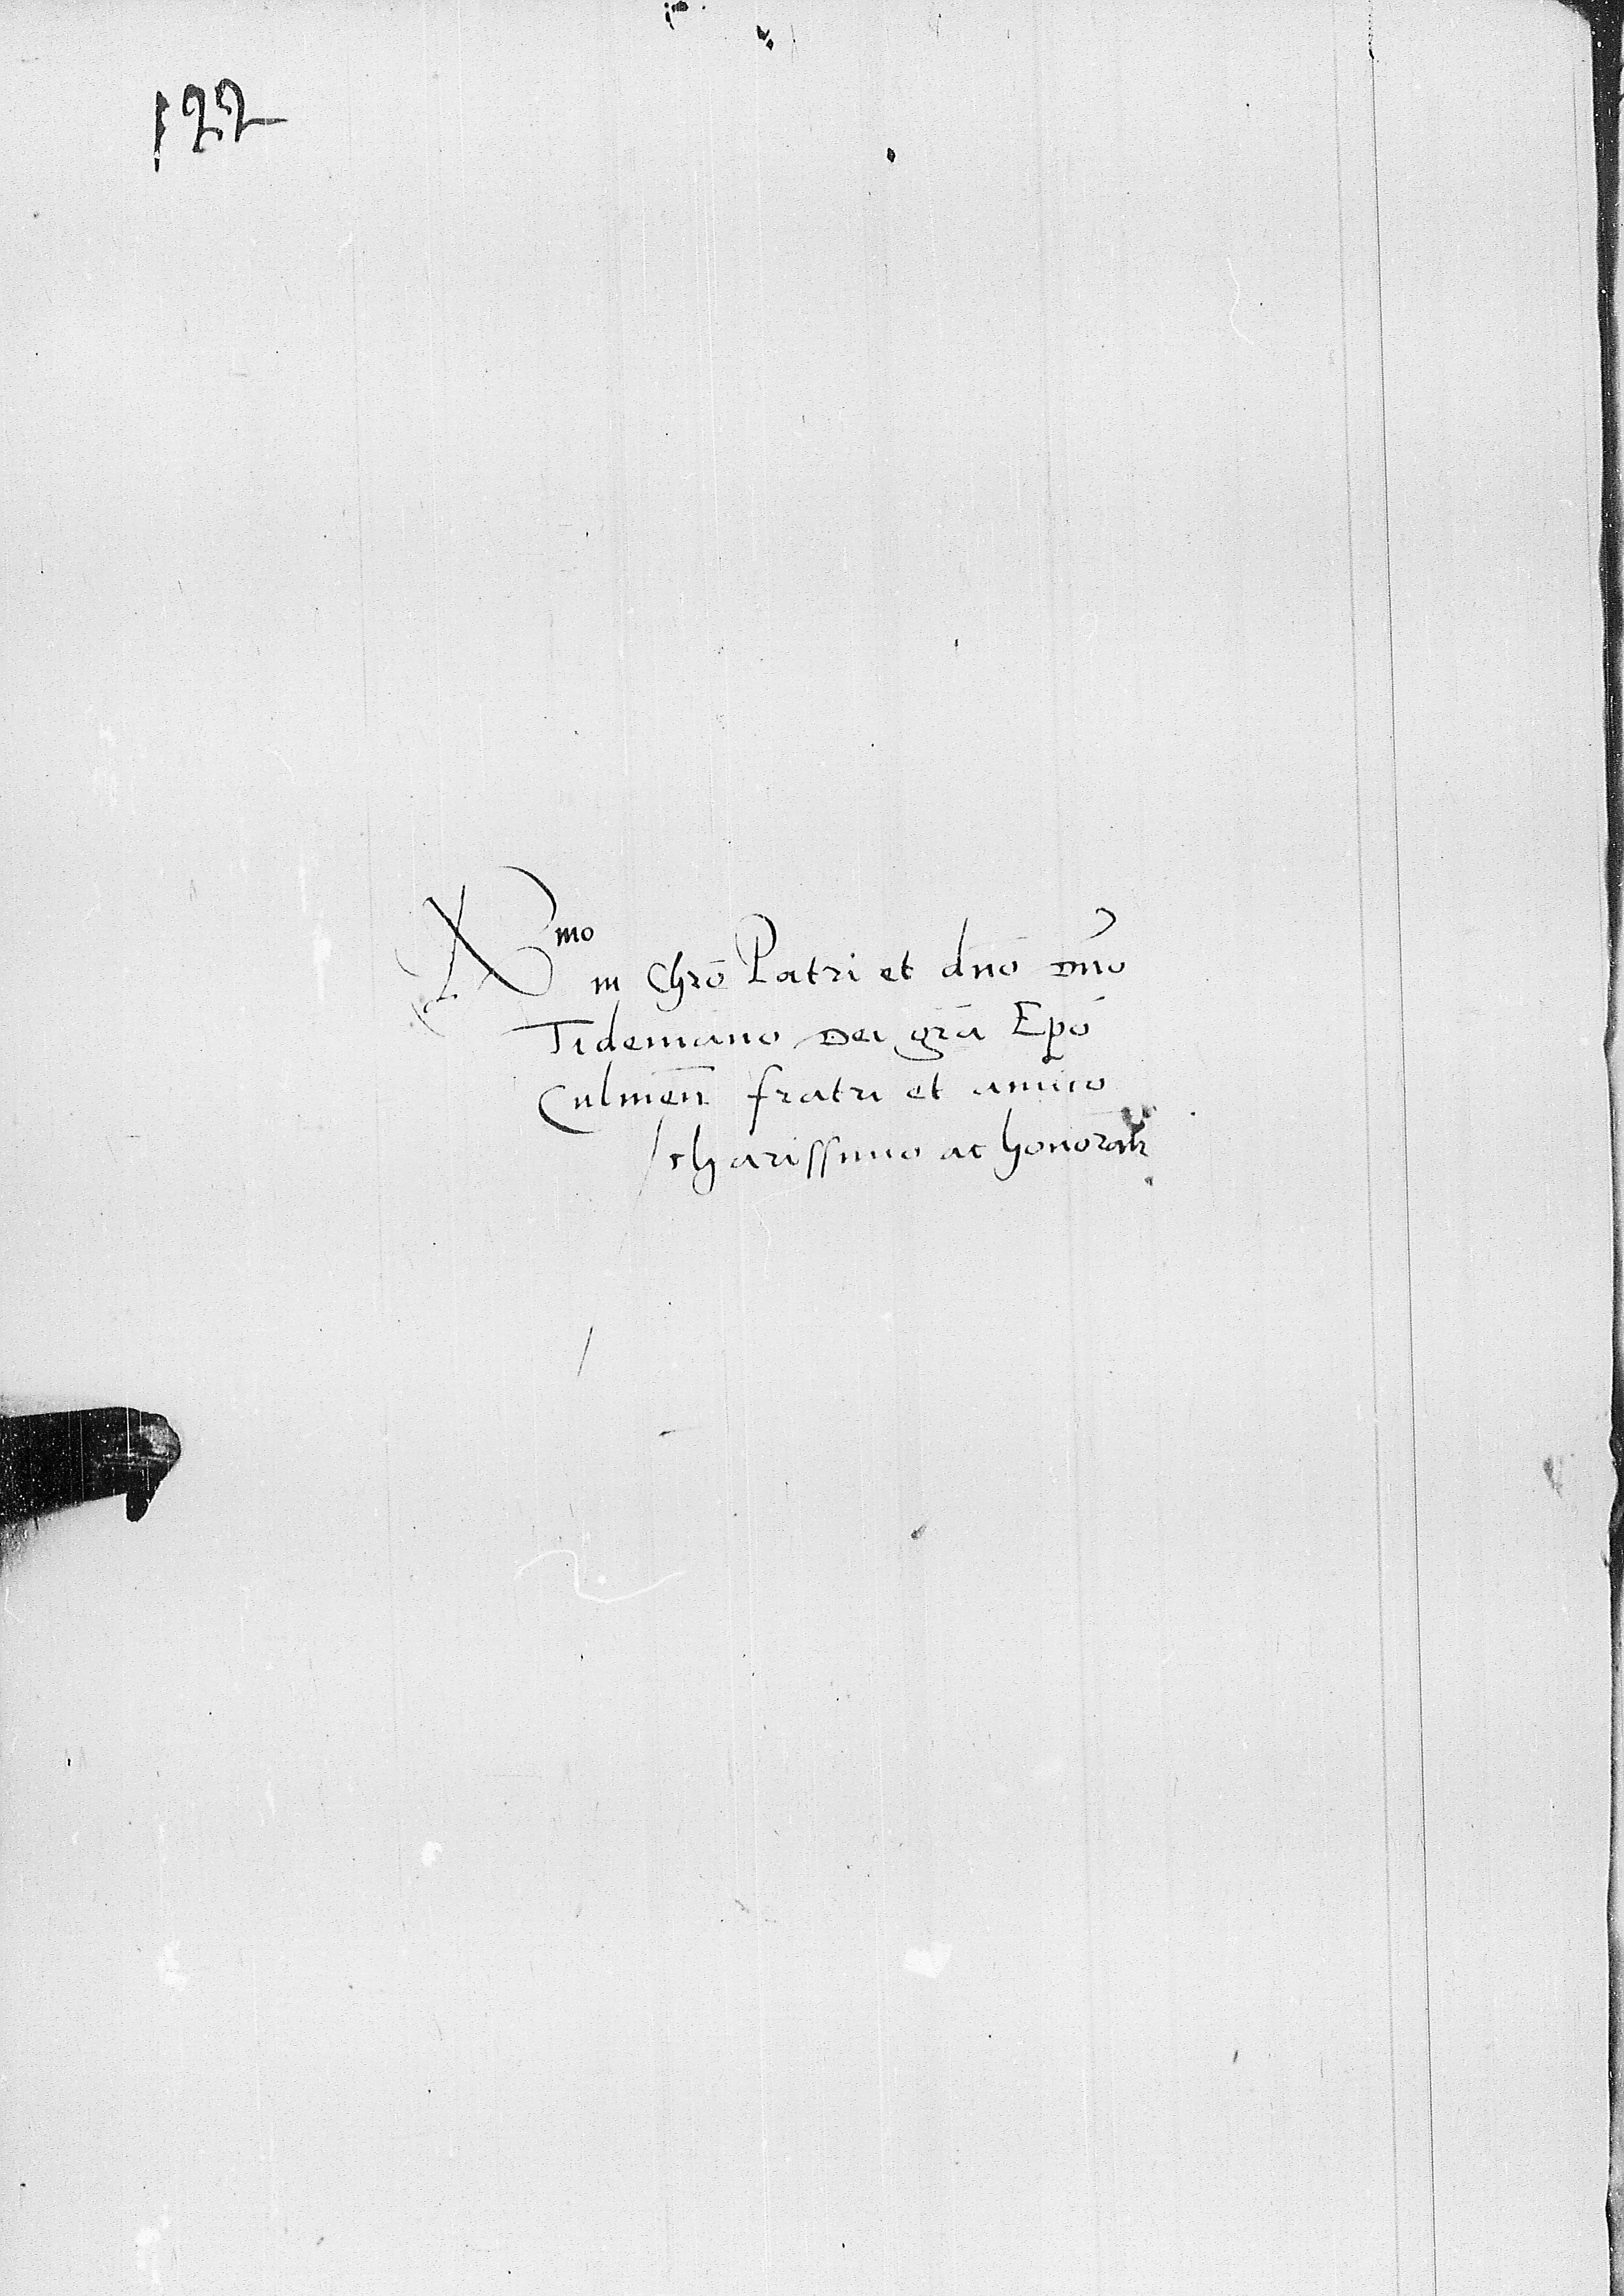 122
R mo
in Chrō Patri et dnō Dno
Tidemano Dei grā Epō
Culmen̄ fratri et amico
charissimo ac honoran